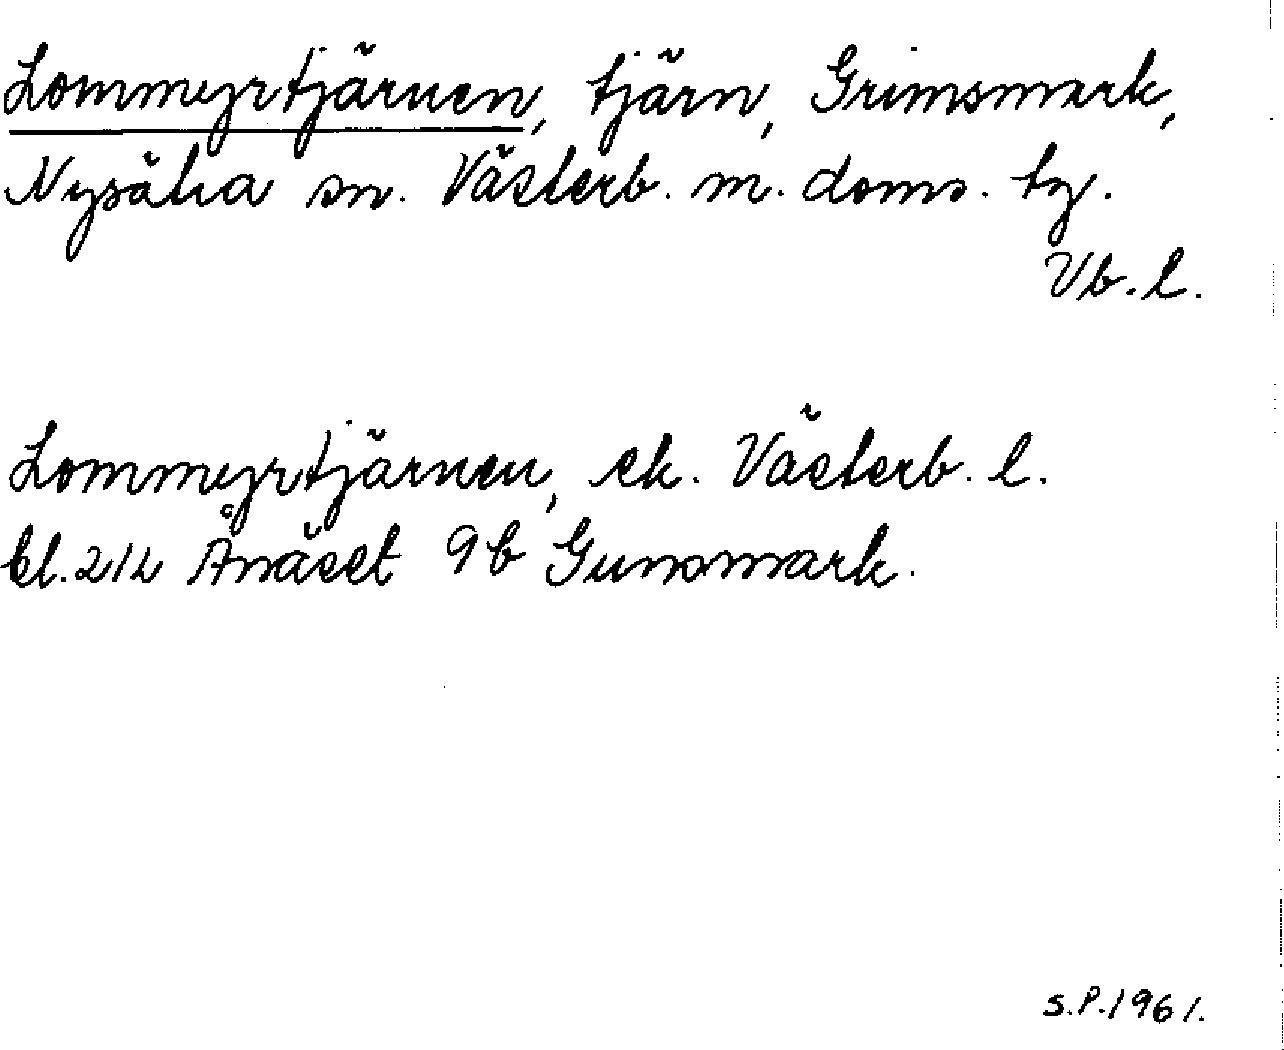 Lommyrtjärnen, tjärn, Grimsmark,
Nysätra sn. Västerb. m. doms. tg.
Vb. l.
Lommyrtjärnen, ek. Västerb. l.
bl. 212 Ånäset 9b Gunsmark.
S.P. 1961.